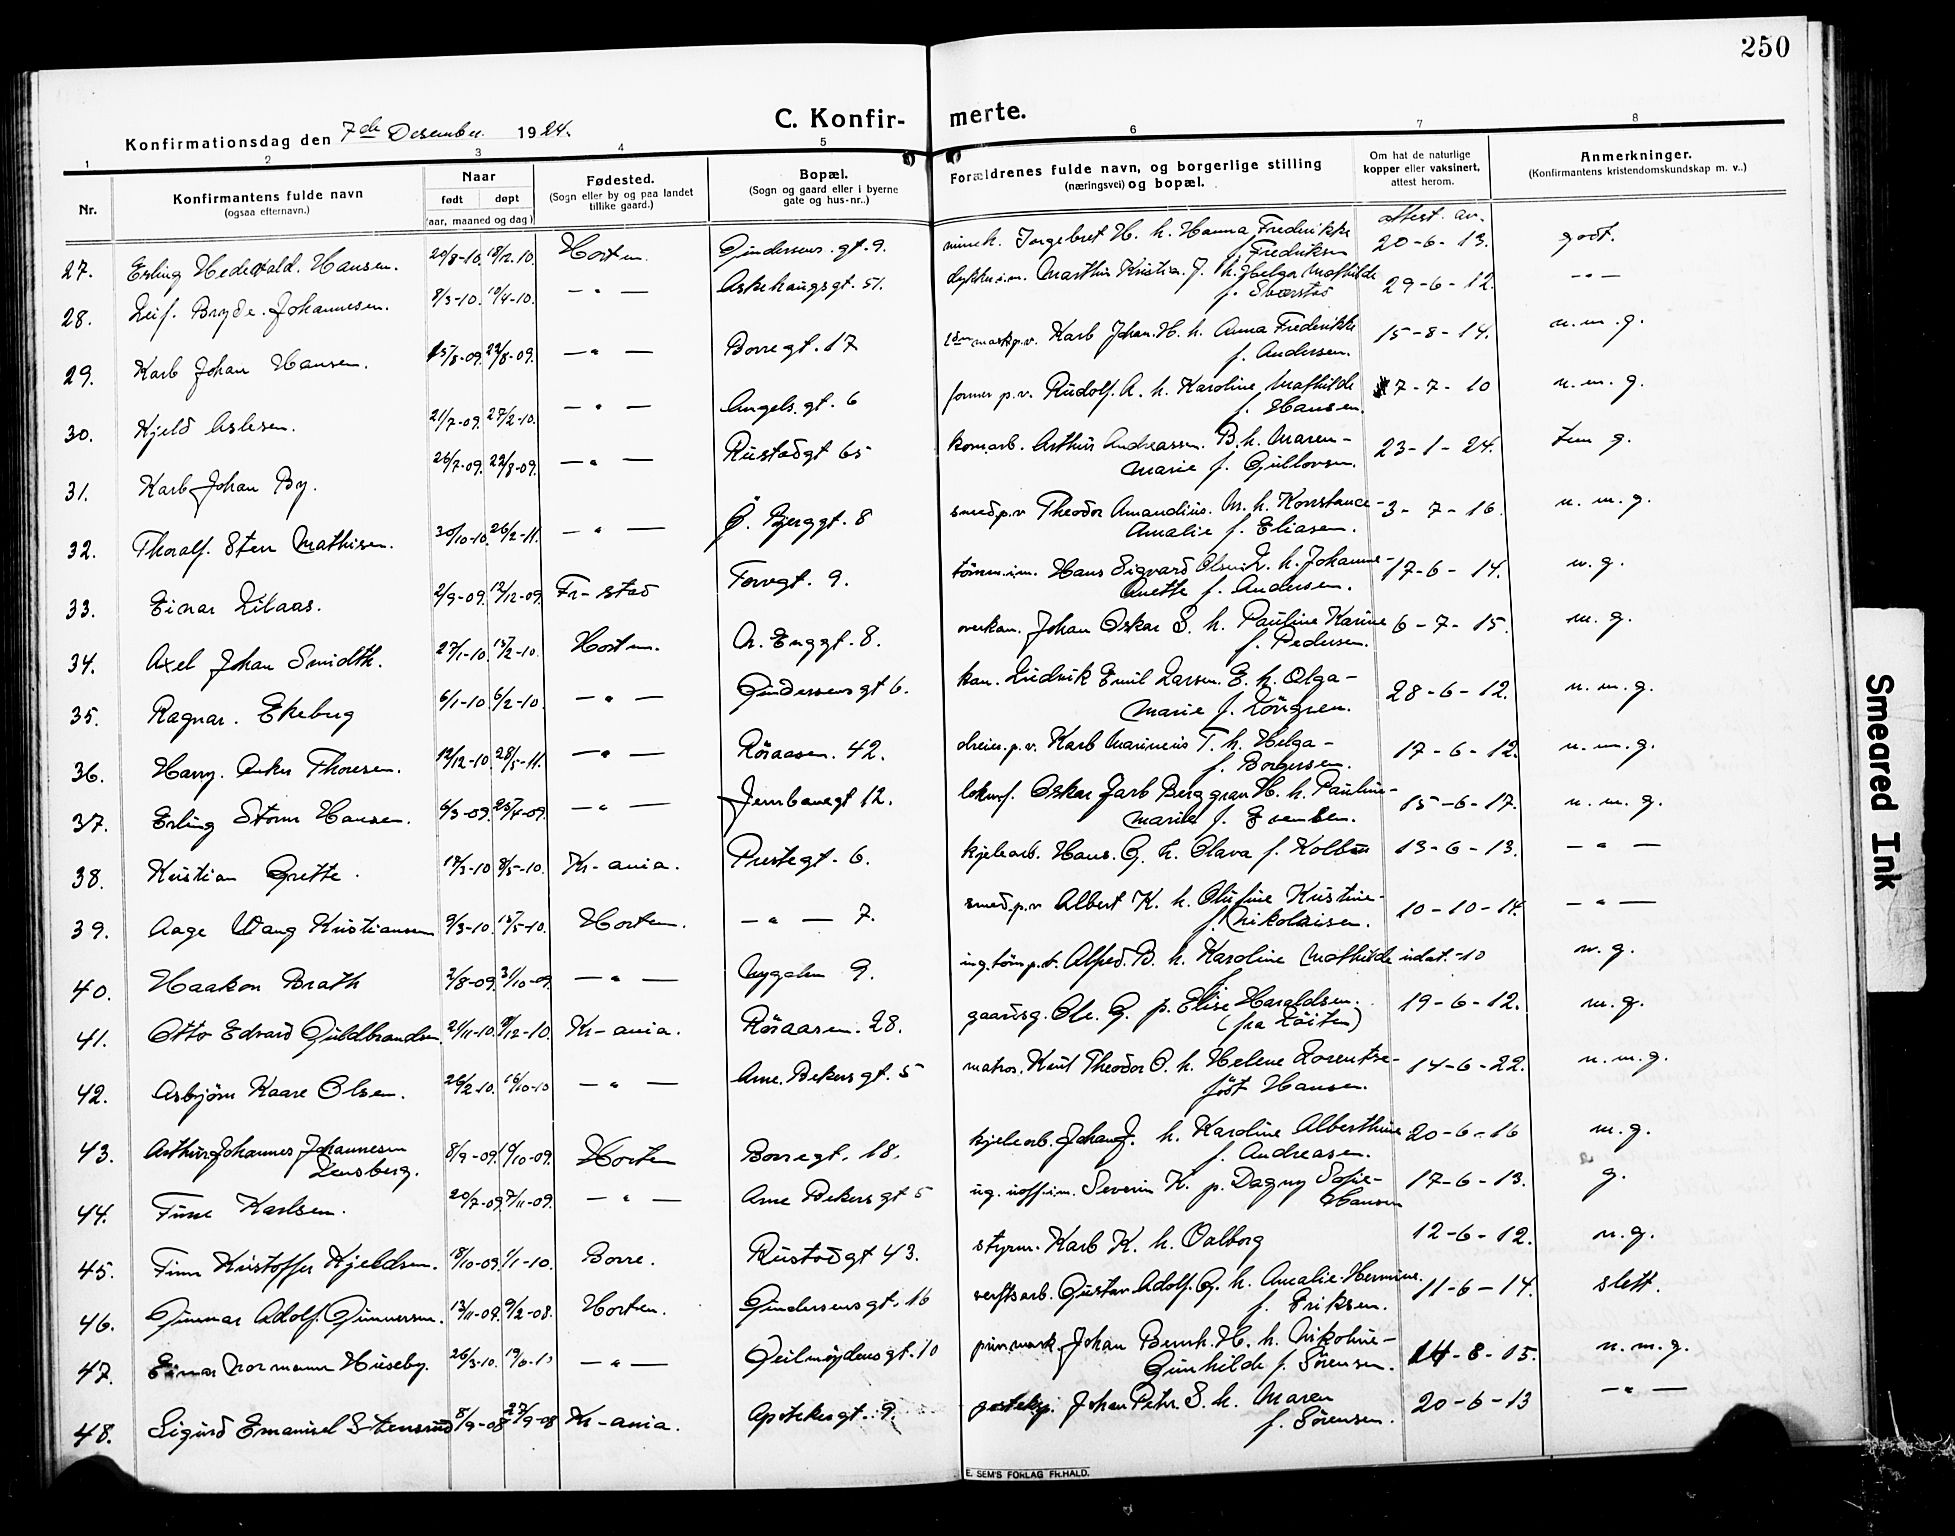 250
Konfirmationsdag den 7de Desember 1924.
C. Konfir-merte.
1 2 3 4 5 6 7 8
Nr.
Konfirmantens fulde navn
(ogsaa efternavn.)
Naar
født døpt
(aar, maaned og dag)
Fødested.
(Sogn eller by og paa landet
tillike gaard.)
Bopæl.
(Sogn og gaard eller i byerne
gate og hus-nr..)
Forældrenes fulde navn, og borgerlige stilling
(næringsvei) og bopæl.
Om hat de naturlige
kopper eller vaksinert,
attest herom.
Anmerkninger.
(Konfirmantens kristendomskundskap m. v..)
attest. av.
27. Erling Hansen. 20/8-10. 18/12.10. Horten. gt. 9. H. h. Hanna Fredrikke 20-6-13. godt.
f. Fredriksen
28. Leif. Bryde. Johannesen. 8/3-10. 10/4-10. — " — Askehaugsgt. 51. Kristian J. h. Helga Mathilde 29-6-12. — " —
29. Karl Johan Hansen. 15/8-09. 22/8-09. — " — Borregt. 17 Karl Johan. H. h. Anna Fredrikke 15-8-14. n. m. g.
f. Andersen.
30. Kjeld Aslesen. 21/7-09. 27/2-10. — " — Angels. gt. 6 former p.v. Rudolf. A. h. Karoline Mathilde 7-7-10 n. m. g.
f. Hansen.
31. Karl Johan By. 26/7-09. 22/8-09. — " — Rustadgt 65 Arthur Andreassen. B. h. Maren- 23-1-24. g.
Marie f. Gullovsen.
32. Thoralf. Sten Mathisen. 30/10-10. 26/2-11. — " — Ø. Bjerggt. 8 smed p.v Theodor Amandius. M. h. Konstance- 3-7-16. n. m. g.
Amalie f. Eliasen.
33. Einar Lilaas. 2/9-09. 12/12-09. Fr-stad Torvgt. 9. tömm.im. Hans Sigvard Olsen L. h. Johanne- 17-6-14. m. g.
Anette f. Andersen.
34. Axel Johan Smidth. 27/1-10. 15/2-10. Horten. N. Enggt. 8. overkan. Johan Oskar S. h. Pauline Karine 6-7-15. m. g.
f. Pedersen.
35. Ragnar. Ekeberg 6/1-10. 6/2-10. — " — Gundersensgt 6. kan. Ludvik Emil Larsen. E. h. Olga- 28-6-12. n. m. g.
Marie f. Lövgren.
36. Harry. Anker Thoresen. 12/12-10. 28/5-11. — " — Röraasen. 42. dreier.p.v. Karl Marinius T. h. Helga- 17-6-12. n. m. g.
f. Borgersen.
37. Erling Storm Hansen. 6/3-09. 25/4-09. — " — Jernbanegt 12. lokmf. Oskar Jarl Berggran H. h. Pauline- 15-6-17. n. m. g.
Marie f.
38. Kristian Grette. 18/3-10 8/5-10. Kr-ania. Prestegt. 6. kjelearb. Hans. G. h. Olava f. 13-6-13. — " —
39. Aage Wang Kristiansen 9/3-10. 15/5-10. Horten. — " — 7. smed.p.v Albert K. h. Olufine Kristine- 10-10-14. — " —
f. Nikolaisen.
40. Haakon Brath 2/8-09. 31/10-09. — " — Nygaten 9. Alfred. B. h. Karoline Mathilde udat.-10 m. g.
41. Otto Edvard Guldbrandsen 21/11-10. 9/12-10. Kr-ania. Röraasen. 28. gaardsg. Ole. G. p. Elise Haraldsen. 19-6-12. m. g.
(fra Löiten)
42. Asbjörn Kaare Olsen. 26/2-10. 16/10-10 — " — Arne. Bekersgt. 5 matros. Knut Theodor O. h. Helene Lorentse- 14-6-22. n. m. g.
föst Hansen.
43. Arthur Johannes Johannesen 8/9-09. 10/10-09. Horten Borregt. 18. kjelearb. Johan J. h. Karoline Alberthine 20-6-16 m. g.
Lensberg. f. Andreasen.
44. Fin Karlsen. 20/7-09. 7/11-09. — " — Arne Bekersgt 5 ug. uoff.im. Severin K. p. Dagny Sofie- 17-6-13. g.
Hansen
45. Finn Kristoffer Kjeldsen. 18/10-09. 1/1-10. Borre. Rustadgt 43. styrm. Karl K. h. Valborg 12-6-12. n. g.
46. Gunnar Adolf. Gunnersen. 13/11-09. 9/2-08. Horten. Gundersensgt. 16 verftsarb. Gustav Adolf. G. h. Amalie-Hermine. 11-6-14. slett.
f. Eriksen.
47. Einar Normann Huseby. 26/3-10. — " — Veilmøydensgt. 10 Johan Bernh. H. h. Nikoline- 14-8-15. n. m. g.
Gunhilde f. Sörensen.
48. Sigurd Emanuel Stensrud 8/9-08 27/9-08 Kr-ania. Apotekergt. 9. postekp. Johan Peter S. h. Maren 20-6-13 — " —
f. Sörensen.
E. SEM'S FORLAG FR.HALD.
Smeared Ink